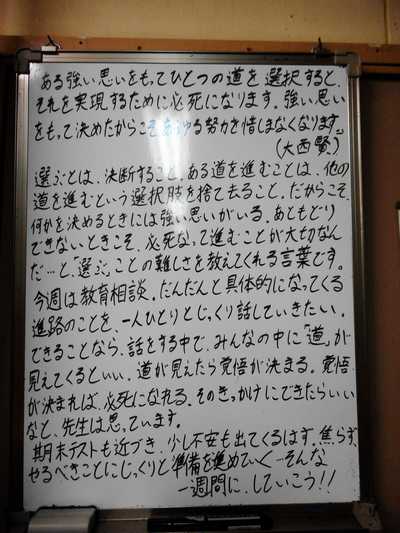 ある強い思いをもってひとつの道を選択すると、
それを実現するために必死になります。強い思い
をもって決めたからこそあらゆる努力を惜しまなくなります。
(大西賢)
選ぶとは、決断すること。ある道を進むことは、他の
道を進むという選択肢を捨て去ること。だからこそ、
何かを決めるときには強い思いがいる。あともどり
できないときこそ、必死なって進むことが大切なん
だ…と「選ぶ」ことの難しさを教えてくれる言葉です。
今週は教育相談。だんだんと具体的になってくる
進路のことを、一人ひとりとじっくり話していきたい。
できることなら、話をする中で、みんなの中に「道」が
見えてくるといい。道が見えたら覚悟が決まる。覚悟
が決まれば、必死になれる。そのきっかけにできたらいい
なと、先生は思っています。
期末テストも近づき、少し不安も出てくるはず。焦らず、
やるべきことにじっくりと準備を進めていく…そんな
一週間に、していこう!!